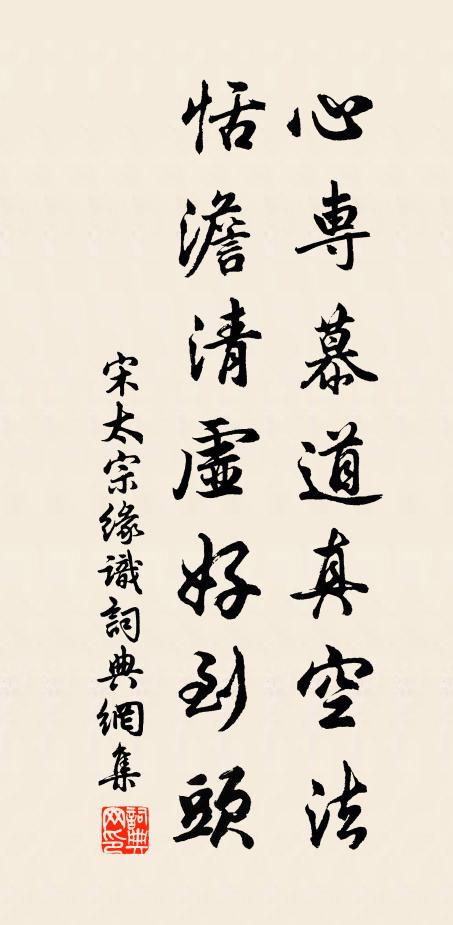 心專慕道真空法
恬澹清虛好到頭
宋太宗緣識詞典網集
詞典网印